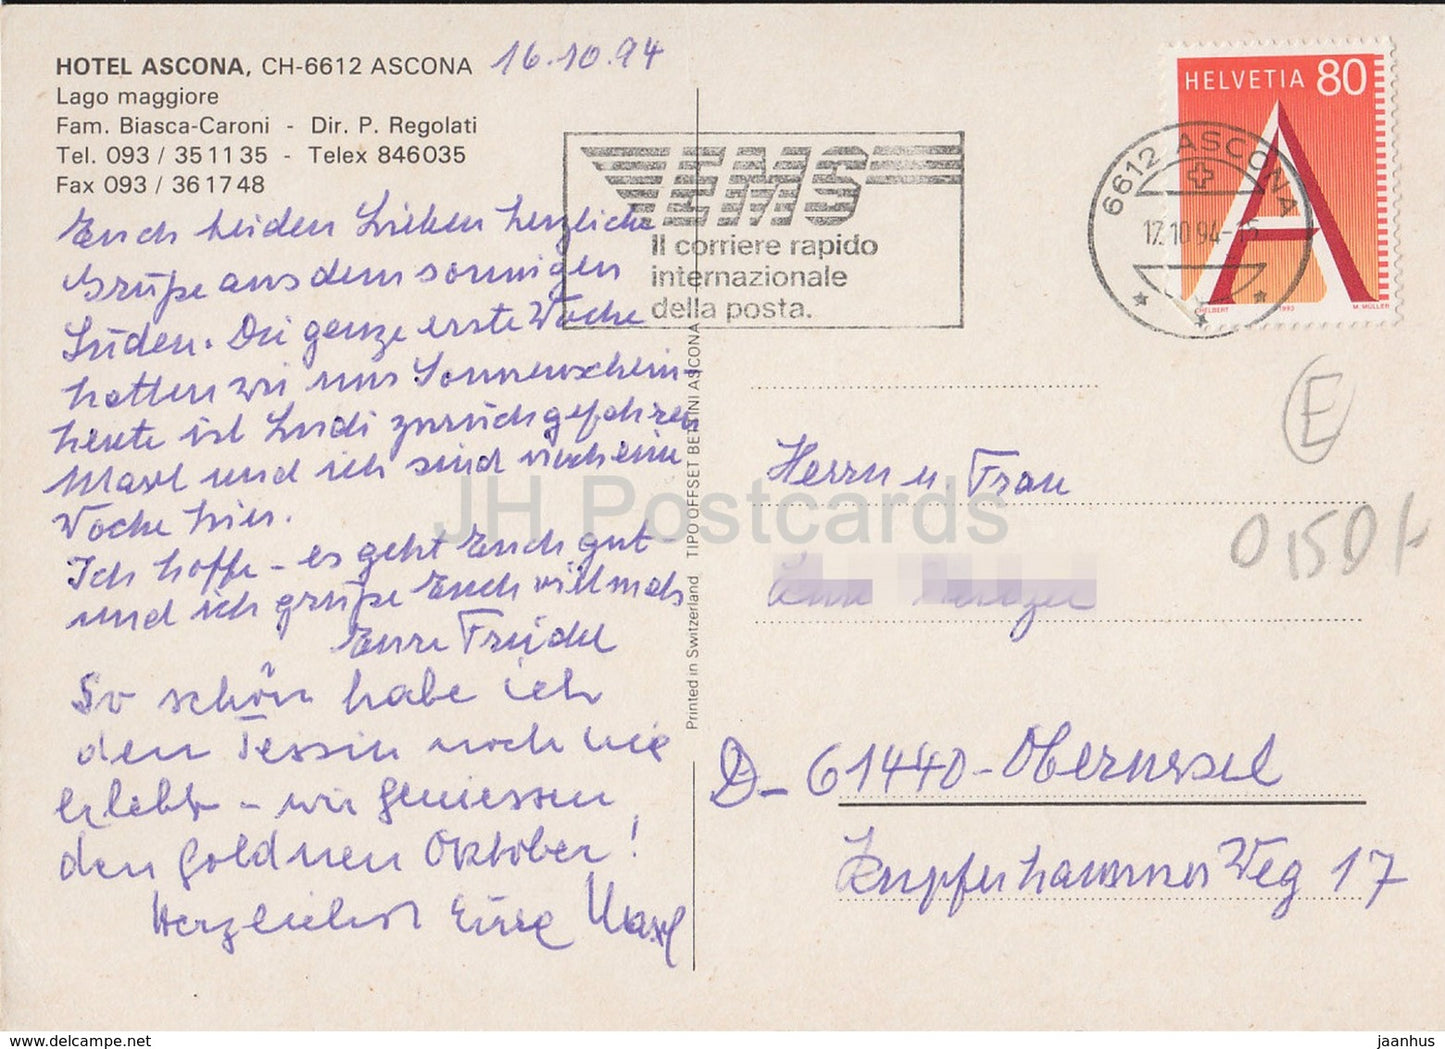 HOTEL ASCONA, CH-6612 ASCONA 16.10.94
Lago maggiore
Fam. Biasca-Caroni - Dir. P. Regolati
Tel. 093 / 35 11 35 - Telex 846035
Fax 093 / 36 17 48
Euch beiden Lieben herzliche
Grüße aus dem sonnigen
Süden. Die ganze erste Woche
hatten wir nur Sonnenschein -
heute ist Ludi zurückgefahren
Maxl und ich sind noch eine
Woche hier.
Ich hoffe - es geht Euch gut -
und ich grüße Euch vielmals
Eure Friedel
So schön habe ich
den Tessin noch nie
erlebt - wir geniessen
den goldnen Oktober!
Herzlichst Eure Maxl
Printed in Switzerland TIPO OFFSET BETTINI ASCONA
EMS
Il corriere rapido
internazionale
della posta.
6612 ASCONA
17.10.94-15
HELVETIA 80
A
1993 M. MÜLLER
E
0,50
Herrn u. Frau
D-61440-Oberursel
Kupferhammer Weg 17
JH Postcards
jaanhus.myshopify.com
jaanhus